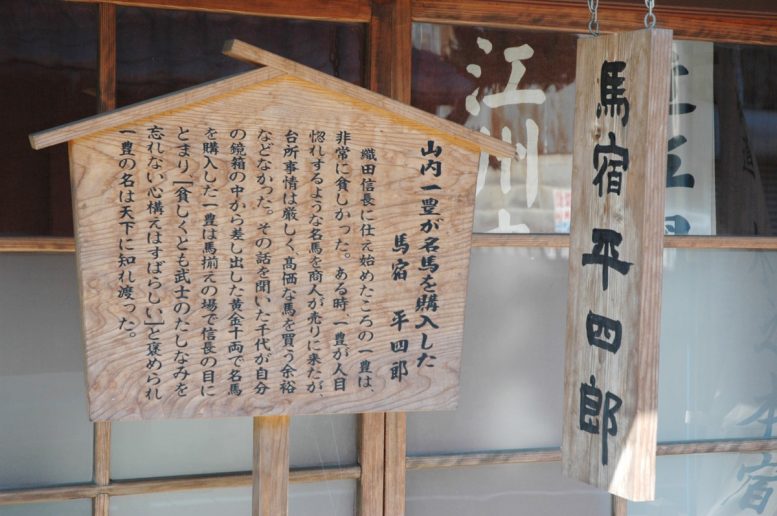 山内一豊が名馬を購入した
馬宿　平四郎
織田信長に仕え始めたころの一豊は、
非常に貧しかった。ある時一豊が人目
惚れするような名馬を商人が売りに来たが、
台所事情は厳しく、高価な馬を買う余裕
などなかった。その話を聞いた千代が自分
の鏡箱の中から差し出した黄金十両で名馬
を購入した一豊は馬揃えの場で信長の目に
とまり「貧しくとも武士のたしなみを
忘れない心構えはすばらしい」と褒められ
一豊の名は天下に知れ渡った。
馬宿 平四郎
江川
本宿